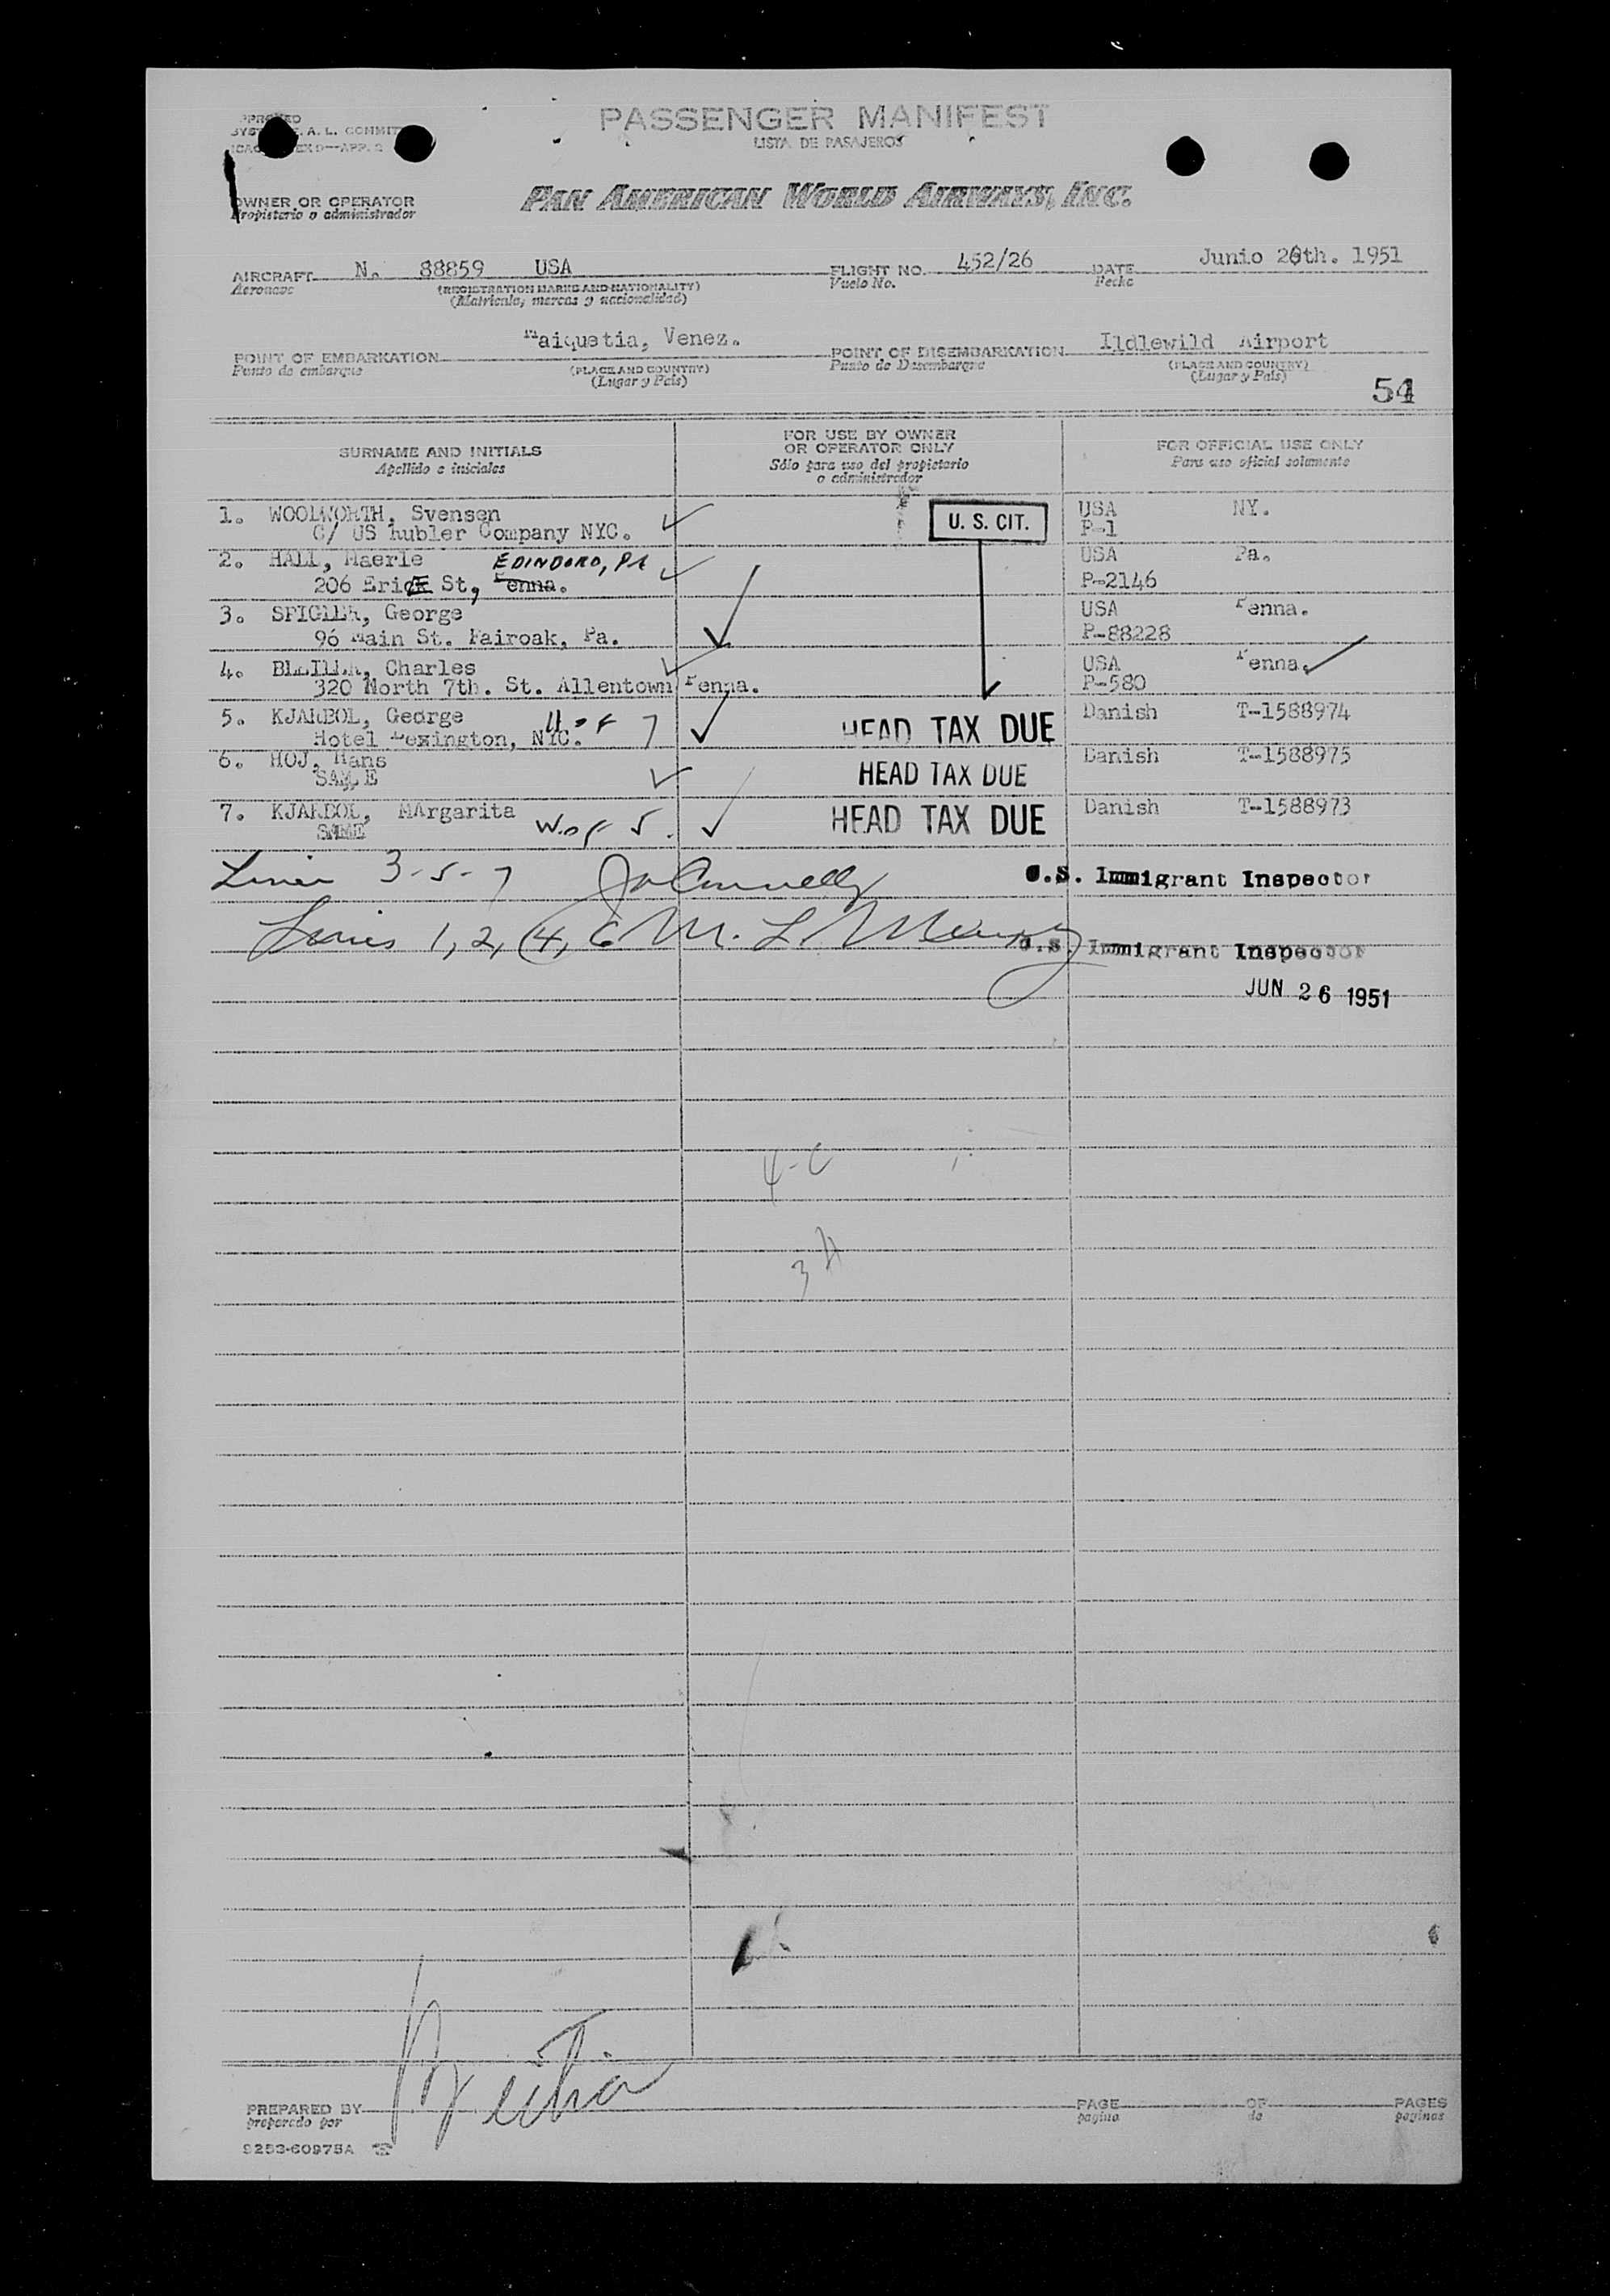 PASSENGER MANIFEST
LISTA DE PASAJEROS
A. L. COMMIT
OWNER OR OPERATOR
Propietario o administrador
PAN AMERICAN WORLD AIRWAYS, INC.
AIRCRAFT N. 88859 USA FLIGHT NO. 452/26 DATE Junio 26th. 1951
Aeronave (REGISTRATION MARKS AND NATIONALITY) Vuelo No. Fecha
(Matricula, marcas y nacionalidad)
POINT OF EMBARKATION Maiquetia, Venez. POINT OF DISEMBARKATION Ildlewild Airport
Punto de embarque (PLACE AND COUNTRY) Punto de Desembarque (PLACE AND COUNTRY)
(Lugar y País) (Lugar y País)
54
SURNAME AND INITIALS FOR USE BY OWNER OR OPERATOR ONLY FOR OFFICIAL USE ONLY
Apellido e iniciales Sólo para uso del propietario o administrador Para uso oficial solamente
1. WOOLWORTH, Svensen U. S. CIT. USA NY.
C/ US Rubler Company NYC. P-1
2. HALL, Maerle EDINBORO, PA USA Pa.
206 Erie St, Penna. P-2146
3. SPIGLER, George USA Penna.
96 Main St. Fairoak, Pa. P-88228
4. Charles USA Penna.
320 North 7th. St. Allentown Penna. P-580
5. KJARBOL, George H of 7 HEAD TAX DUE Danish T-1588974
Hotel Lexington, NYC.
6. HOJ, Hans HEAD TAX DUE Danish T-1588975
SAME
7. KJARBOL, MArgarita W. of 5. HEAD TAX DUE Danish T-1588973
SAME
Lines 3-5-7 U.S. Immigrant Inspector
Lines 1, 2, 4, 6 M. L. U.S. Immigrant Inspector
JUN 26 1951
4-C
3 A
PREPARED BY PAGE OF PAGES
preparado por pagina de paginas
9253-60975A